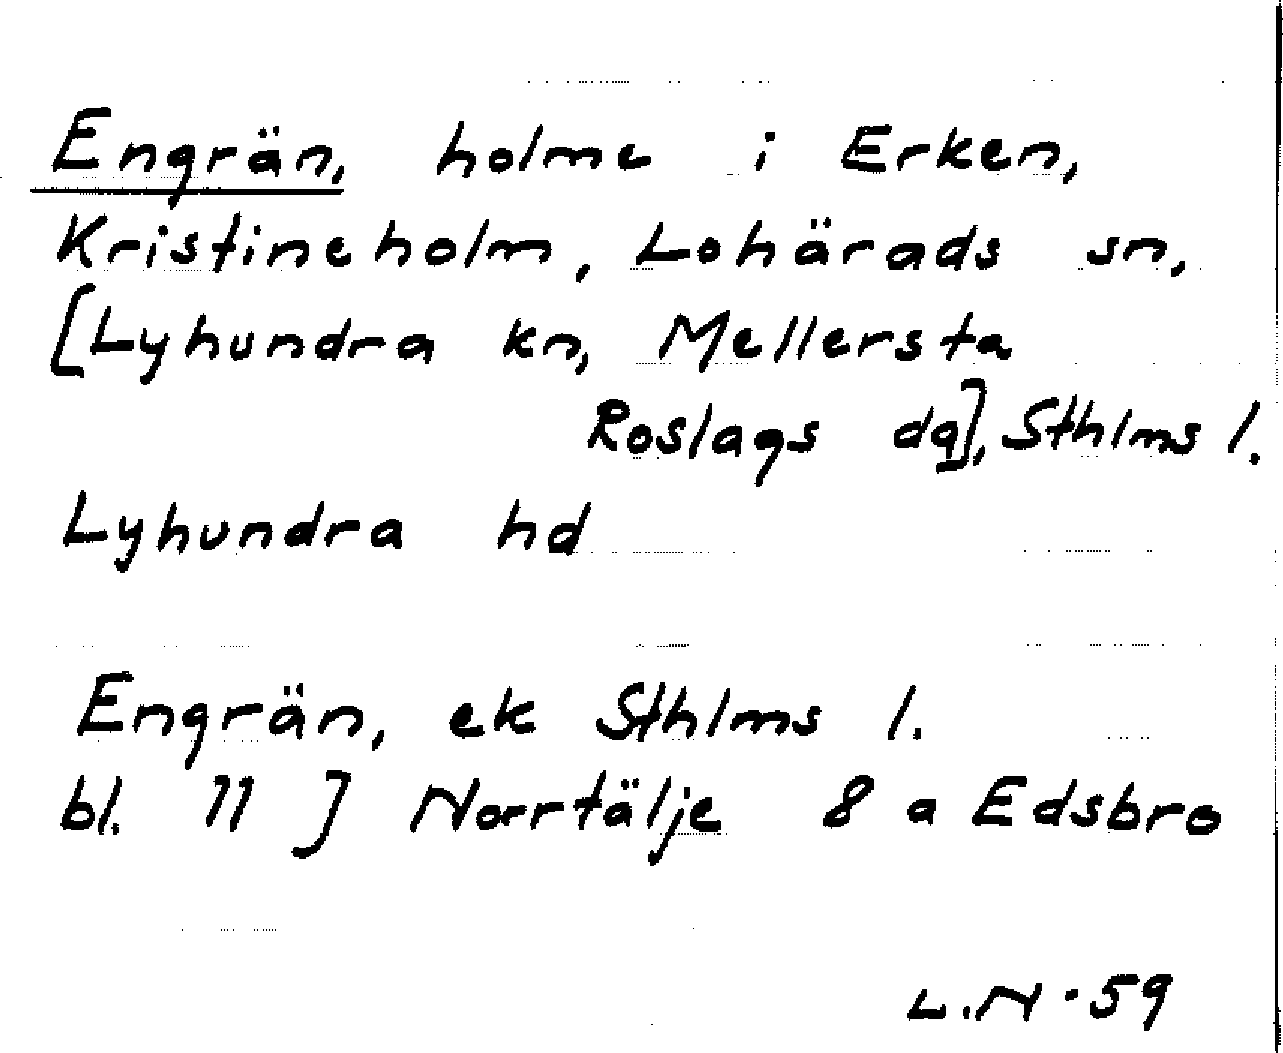 Engrän, holme i Erken,
Kristineholm, Lohärads sn,
[Lyhundra kn, Mellersta
Roslags dg], Sthlms l.
Lyhundra hd
Engrän, ek Sthlms l.
bl. 11 J Norrtälje 8 a Edsbro
L.N-59